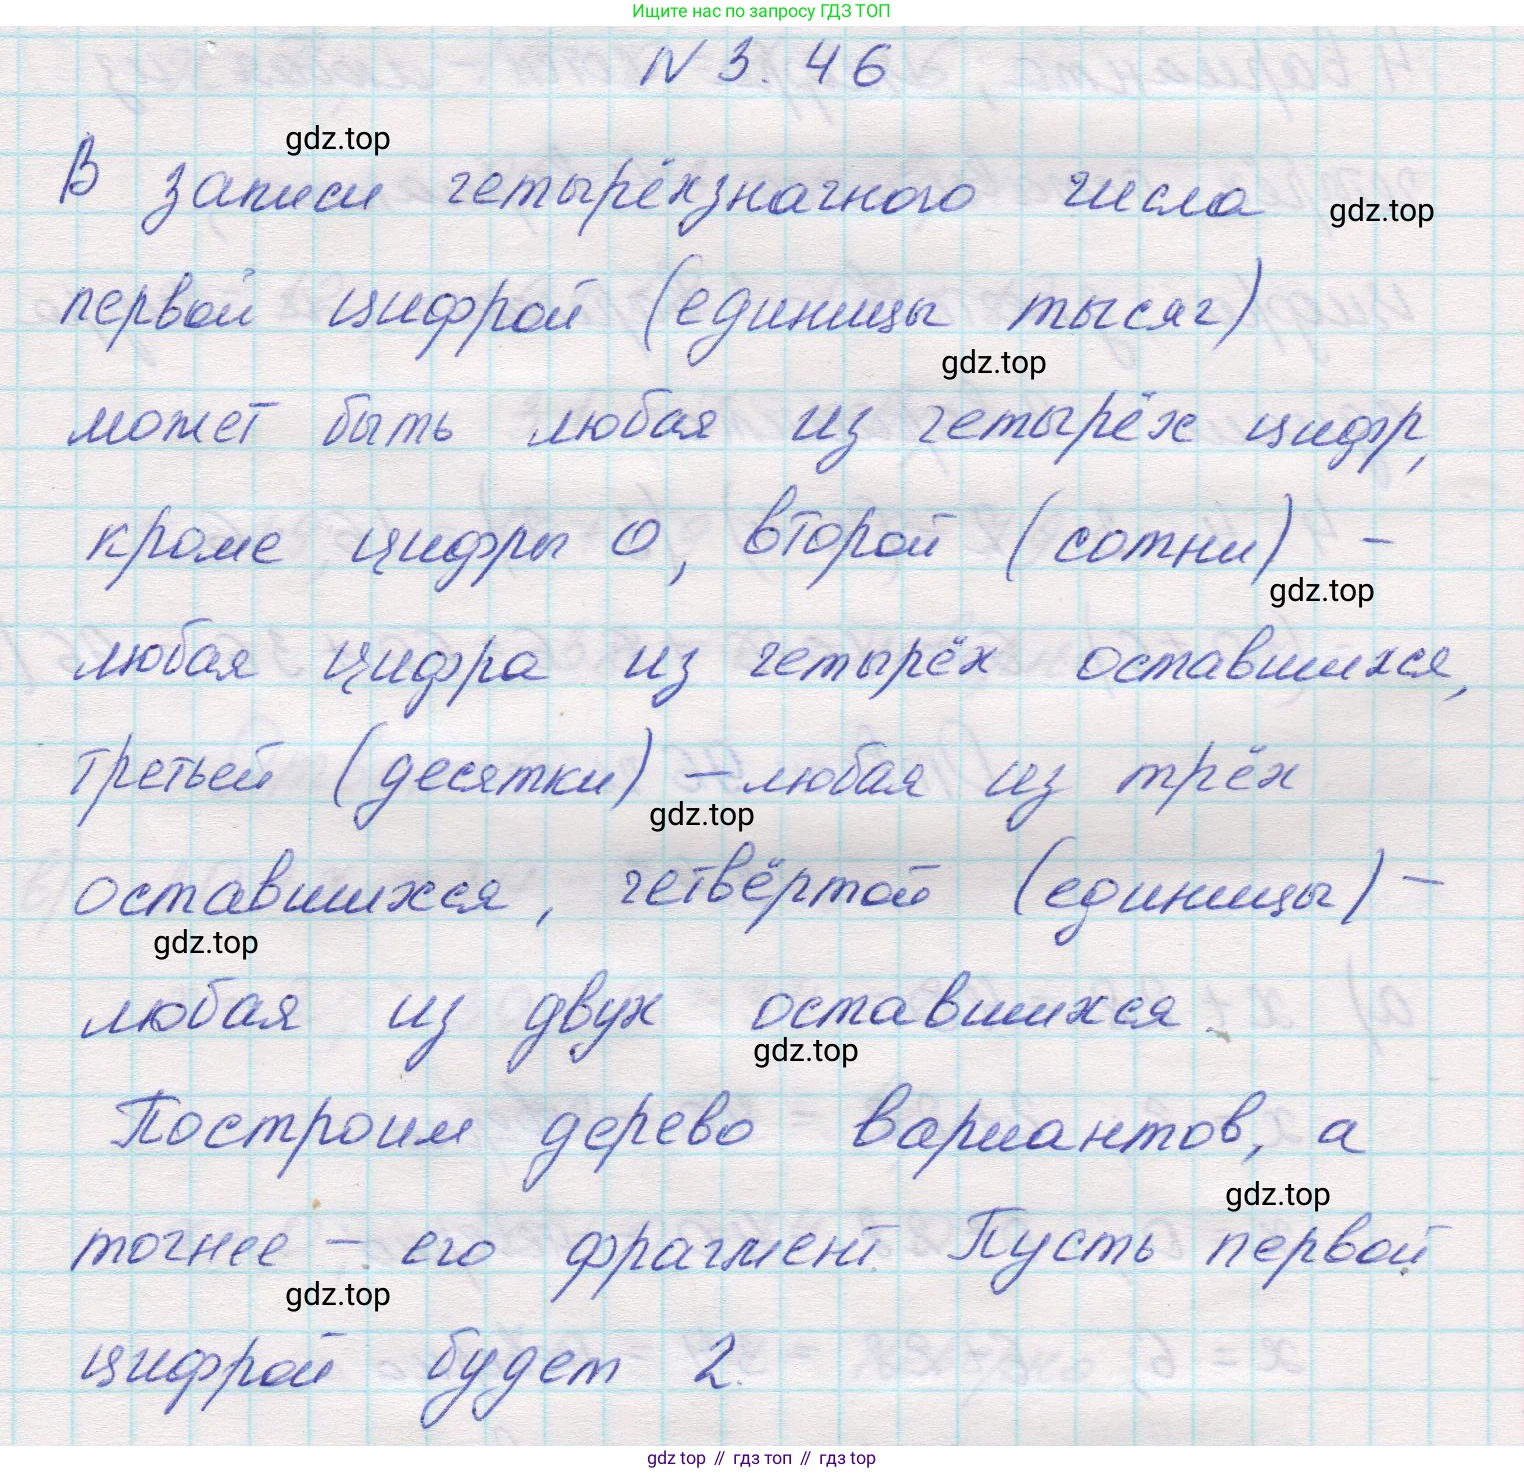 Ищите нас по запросу ГДЗ ТОП
N 3.46
gdz.top
В записи четырёхзначного числа
gdz.top
первой цифрой (единицы тысяч)
gdz.top
может быть любая из четырёх цифр,
кроме цифры 0, второй (сотни) –
gdz.top
любая цифра из четырёх оставшихся,
третьей (десятки) – любая из трёх
gdz.top
оставшихся, четвёртой (единицы) –
gdz.top
любая из двух оставшихся.
gdz.top
Построим дерево вариантов, а
gdz.top
точнее – его фрагмент. Пусть первой
gdz.top
цифрой будет 2.
gdz top // гдз топ // гдз top